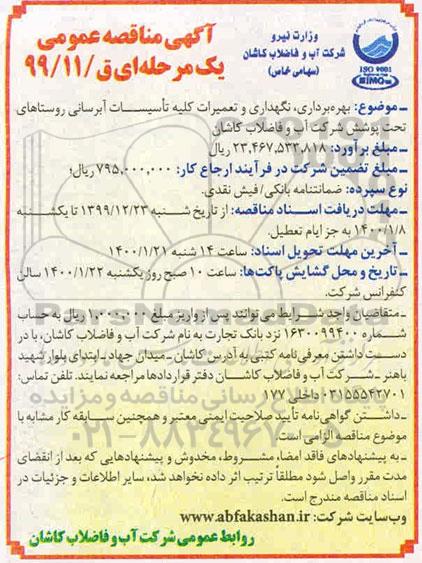 آگهی مناقصه عمومی
یک مرحله‌ای ق/۹۹/۱۱
وزارت نیرو
شرکت آب و فاضلاب کاشان
(سهامی خاص)
ISO 9001
IMQ
ـ موضوع: بهره‌برداری، نگهداری و تعمیرات کلیه تأسیسات آبرسانی روستاهای
تحت پوشش شرکت آب و فاضلاب کاشان
ـ مبلغ برآورد: ۲۳,۴۶۷,۵۳۲,۸۱۸ ریال
ـ مبلغ تضمین شرکت در فرآیند ارجاع کار: ۷۹۵,۰۰۰,۰۰۰ ریال؛
نوع سپرده: ضمانتنامه بانکی/ فیش نقدی.
ـ مهلت دریافت اسناد مناقصه: از تاریخ شنبه ۱۳۹۹/۱۲/۲۳ تا یکشنبه
۱۴۰۰/۱/۸ به جز ایام تعطیل.
ـ آخرین مهلت تحویل اسناد: ساعت ۱۴ شنبه ۱۴۰۰/۱/۲۱
ـ تاریخ و محل گشایش پاکت‌ها: ساعت ۱۰ صبح روز یکشنبه ۱۴۰۰/۱/۲۲ سالن
کنفرانس شرکت.
ـ متقاضیان واجد شرایط می‌توانند پس از واریز مبلغ ۱,۰۰۰,۰۰۰ ریال به حساب
شماره ۱۶۳۰۰۹۹۴۰۰ نزد بانک تجارت به نام شرکت آب و فاضلاب کاشان، با در
دست داشتن معرفی‌نامه کتبی به آدرس کاشان ـ میدان جهاد ـ ابتدای بلوار شهید
باهنر ـ شرکت آب و فاضلاب کاشان دفتر قراردادها مراجعه نمایند. تلفن تماس:
۰۳۱۵۵۵۴۲۷۰۱ داخلی ۱۷۷
ـ داشتن گواهی‌نامه تأیید صلاحیت ایمنی معتبر و همچنین سابقه کار مشابه با
موضوع مناقصه الزامی است.
ـ به پیشنهادهای فاقد امضاء، مشروط، مخدوش و پیشنهادهایی که بعد از انقضای
مدت مقرر واصل شود مطلقاً ترتیب اثر داده نخواهد شد، سایر اطلاعات و جزئیات در
اسناد مناقصه مندرج است.
وب‌سایت شرکت: www.abfakashan.ir
روابط عمومی شرکت آب و فاضلاب کاشان